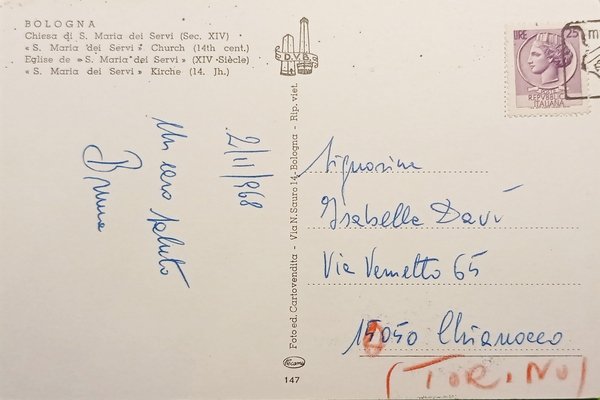 BOLOGNA
Chiesa di S. Maria dei Servi (Sec. XIV)
«S. Maria dei Servi» Church (14th cent.)
Eglise de «S. Maria dei Servi» (XIV Siècle)
«S. Maria dei Servi» Kirche (14. Jh.)
D.V.B.
Foto ed. Cartovendita - Via N. Sauro 14 - Bologna - Rip. viet.
147
LIRE 25
REPVBBLICA
ITALIANA
2/11/968
Un caro saluto
Bruna
Signorina
Isabella Davì
Via Vernetto 65
10050 Chianocco
(TORINO)